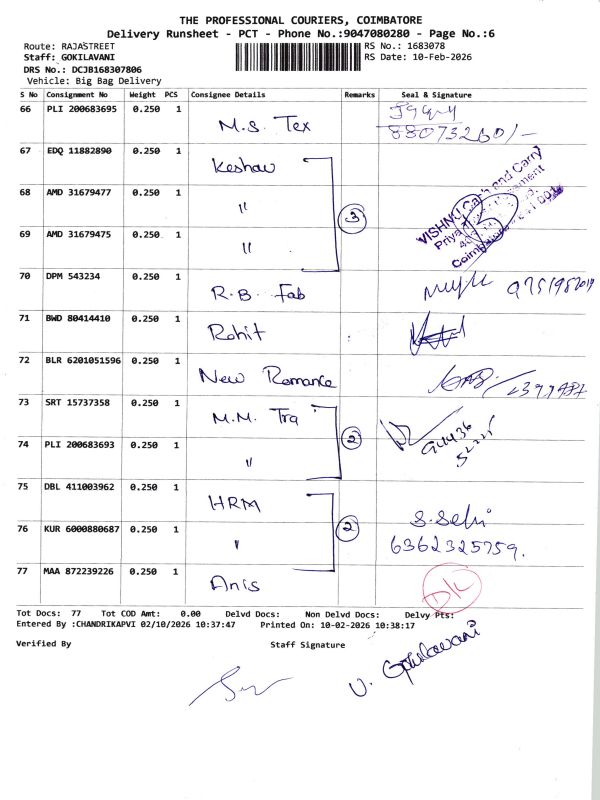 THE PROFESSIONAL COURIERS, COIMBATORE
Delivery Runsheet - PCT - Phone No.:9047080280 - Page No.:6
Route: RAJASTREET RS No.: 1683078
Staff: GOKILAVANI RS Date: 10-Feb-2026
DRS No.: DCJB168307806
Vehicle: Big Bag Delivery
S No Consignment No Weight PCS Consignee Details Remarks Seal & Signature
66 PLI 200683695 0.250 1 M.S. Tex
67 EDQ 11882890 0.250 1 Keshav
VISHNU Cash and Carry
68 AMD 31679477 0.250 1 " 3
69 AMD 31679475 0.250 1 "
70 DPM 543234 0.250 1 R.B. Fab
71 BWD 80414410 0.250 1 Rohit
72 BLR 6201051596 0.250 1 New Romance
73 SRT 15737358 0.250 1 M.M. Tra
74 PLI 200683693 0.250 1 " 2
75 DBL 411003962 0.250 1 HRM
76 KUR 6000880687 0.250 1 " 2 S. Selvi
6362325759.
77 MAA 872239226 0.250 1 Anis D/L
Tot Docs: 77 Tot COD Amt: 0.00 Delvd Docs: Non Delvd Docs: Delvy Pts:
Entered By :CHANDRIKAPVI 02/10/2026 10:37:47 Printed On: 10-02-2026 10:38:17
Verified By Staff Signature
V. Gokilavani